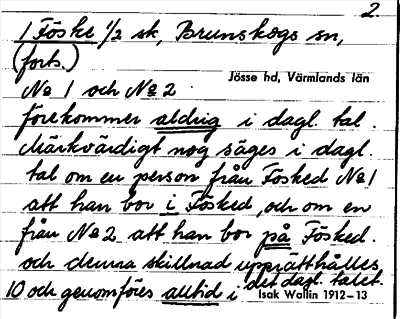 2.
1 Föske 1/2 sk, Brunskogs sn,
(forts.)
Jösse hd, Värmlands län
No 1 och No 2
förekommer aldrig i dagl. tal.
Märkvärdigt nog säges i dagl.
tal om en person från Fösked No 1
att han bor i Fösked, och om en
från No 2 att han bor på Fösked.
och denna skillnad upprätthålles
10 och genomföres alltid i det dagl. talet.
Isak Wallin 1912-13